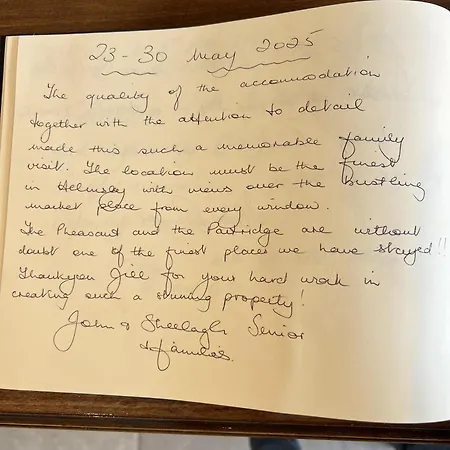 23 - 30 May 2025
The quality of the accommodation
together with the attention to detail
made this such a memorable family
visit. The location must be the finest
in Helmsley with views over the bustling
market place from every window.
The Pheasant and the Partridge are without
doubt one of the finest places we have stayed!!
Thankyou Jill for your hard work in
creating such a stunning property!
John & Sheelagh Senior
& families.